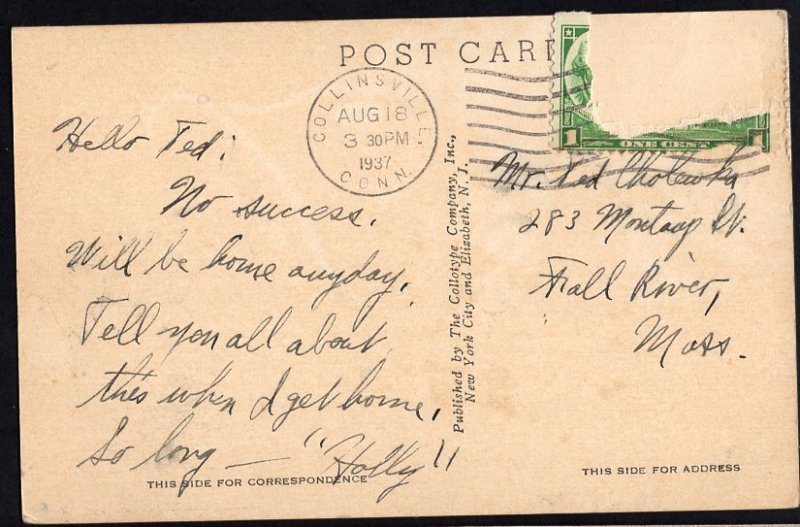 POST CARD
COLLINSVILLE
AUG 18
3 30 PM
1937
CONN.
1 ONE CENT
Hello Ted:
No success.
Will be home anyday.
Tell you all about
this when I get home.
So long — "Holly"
THIS SIDE FOR CORRESPONDENCE
Published by The Collotype Company, Inc.,
New York City and Elizabeth, N. J.
Mr. Ted Cholewka
283 Montaup St.
Fall River,
Mass.
THIS SIDE FOR ADDRESS